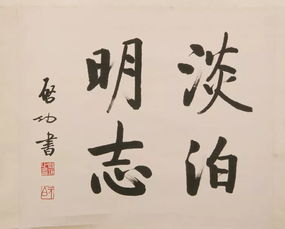 淡泊
明志
啓功書